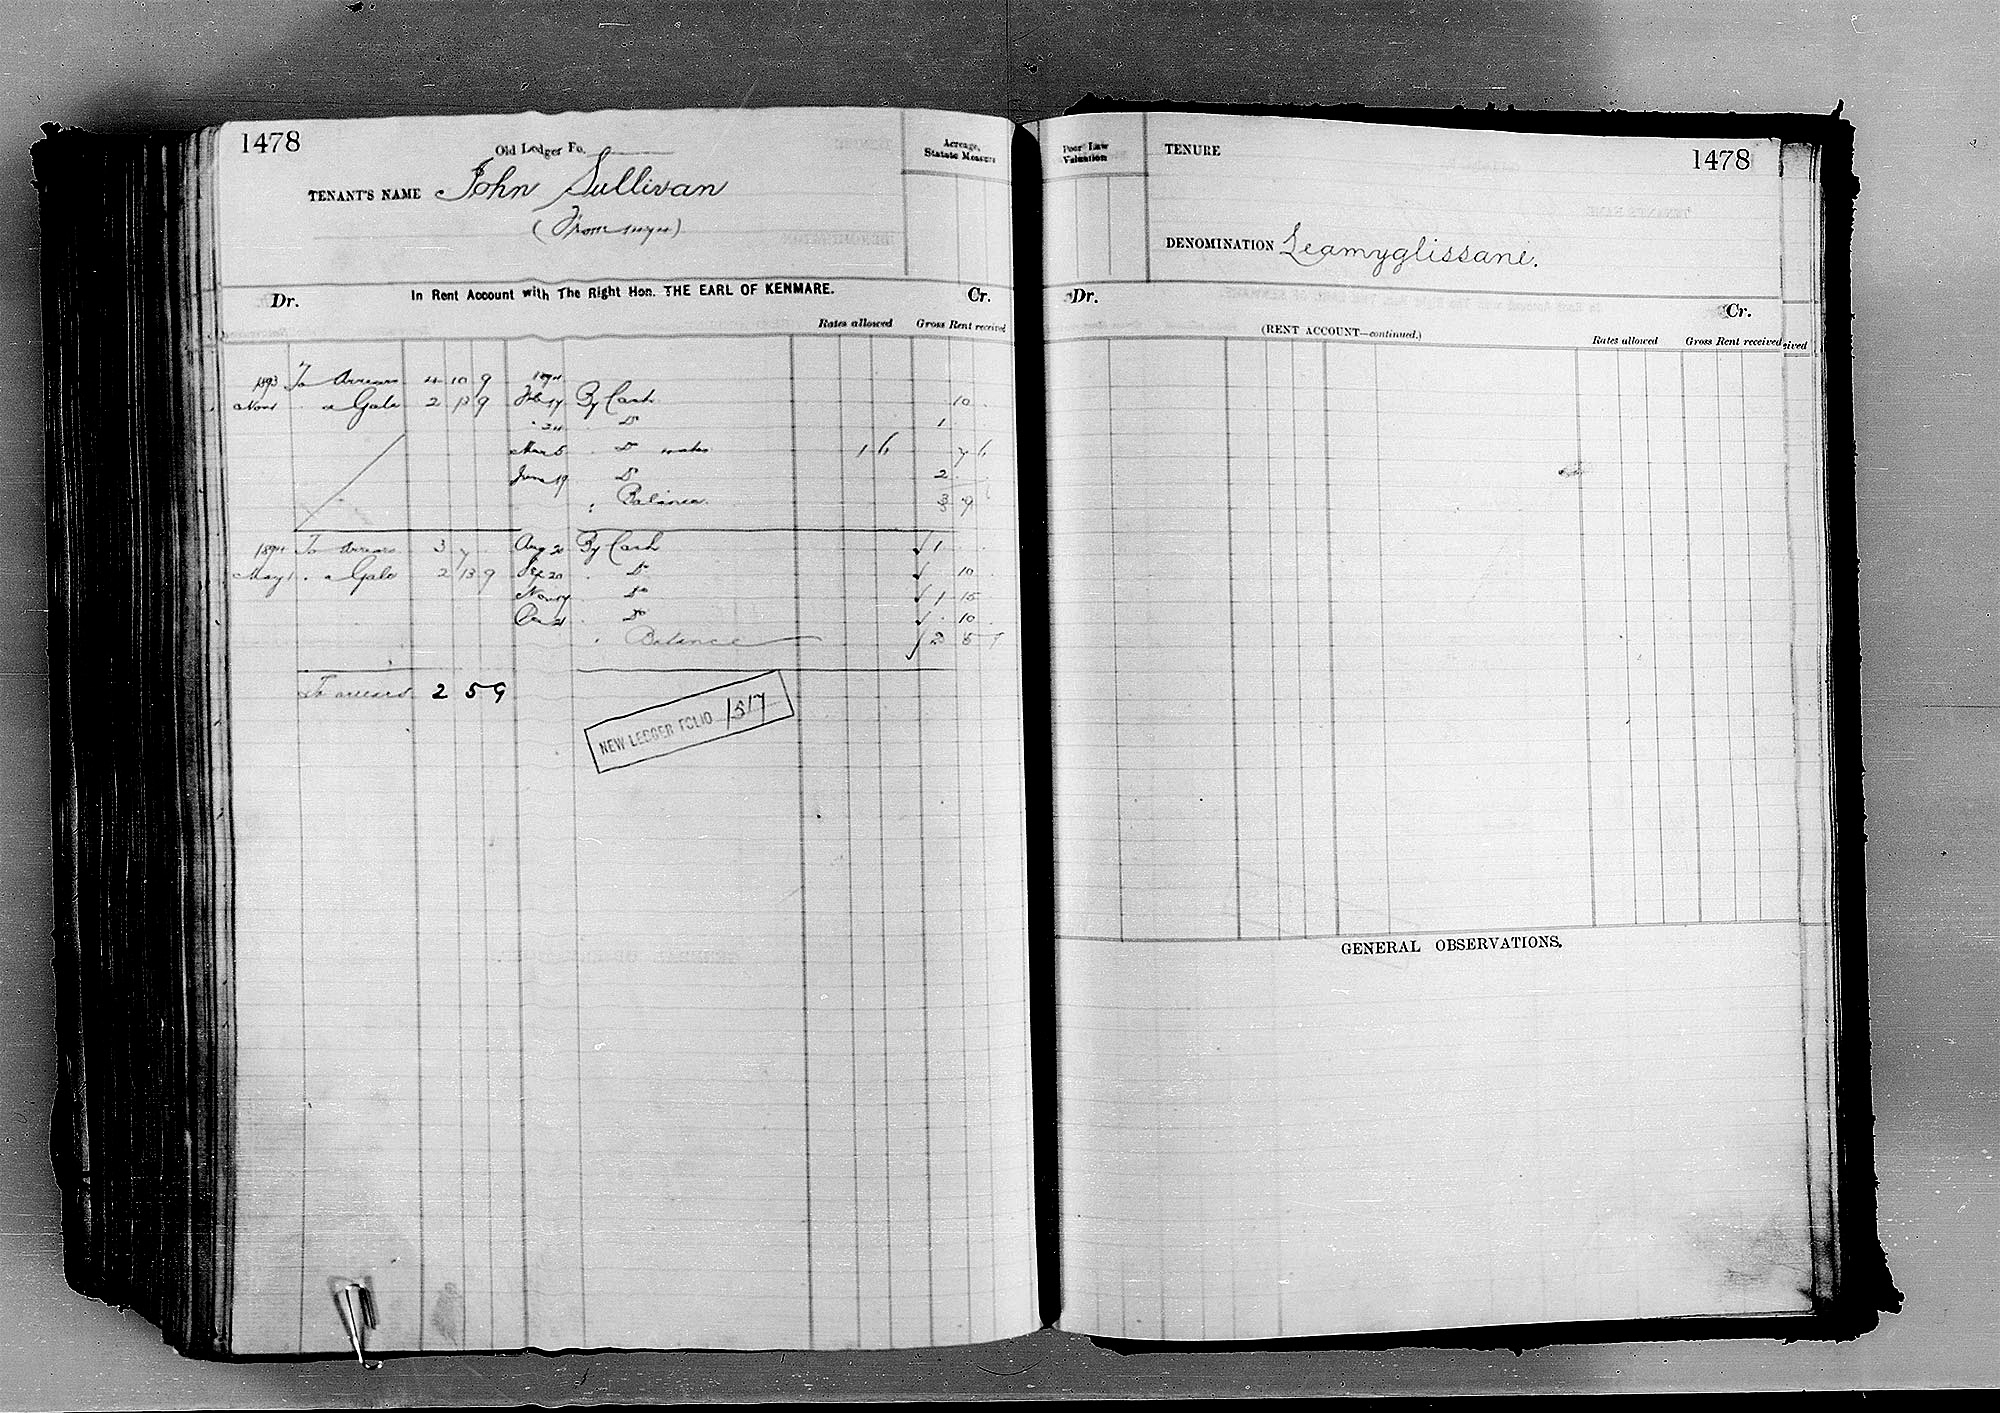 1478
Old Ledger Fo.
TENANT'S NAME John Sullivan
(From 1474)
Acreage, Statute Measure
In Rent Account with The Right Hon. THE EARL OF KENMARE.
Dr. Cr.
Rates allowed Gross Rent received
1893 To Arrears 4 10 9 1894
Nov 1 " a Gale 2 13 9 Feb 17 By Cash 10
" 24 " Do 1
Mar 5 " Do 1 6 7 6
June 19 Do 2
" Balance 3 9
1894 To Arrears 3 7 Aug 20 By Cash 1
May 1 " a Gale 2 13 9 Sep 20 " Do 10
Nov 17 Do 1 15
Dec 21 Do 10
" Balance 2 5 9
To arrears 2 5 9
NEW LEDGER FOLIO 1517
Poor Law Valuation
TENURE
1478
DENOMINATION Leamyglissane.
Dr. Cr.
(RENT ACCOUNT—continued.)
Rates allowed Gross Rent received
GENERAL OBSERVATIONS.